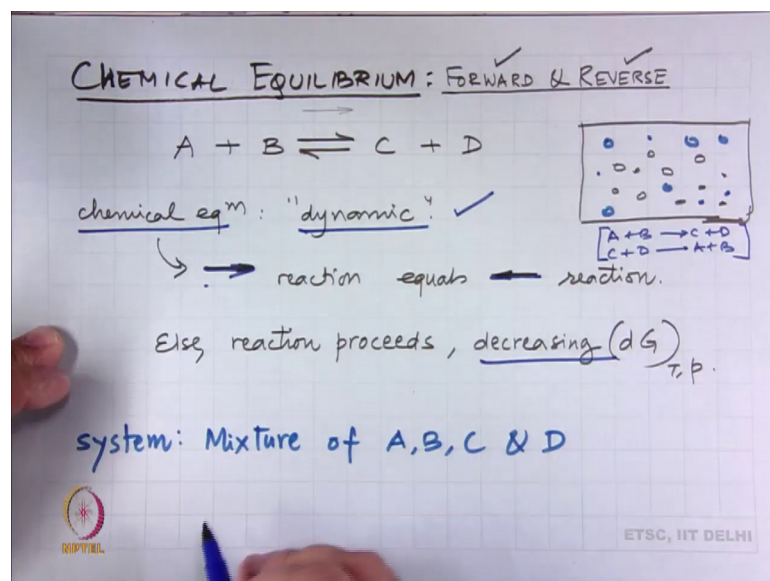 CHEMICAL EQUILIBRIUM: FORWARD & REVERSE
A + B ⇌ C + D
chemical eqᵐ: "dynamic". ✓
A+B → C+D
C+D → A+B
→ reaction equals ← reaction.
Else, reaction proceeds, decreasing (dG)T,p.
system: Mixture of A, B, C & D
NPTEL
ETSC, IIT DELHI